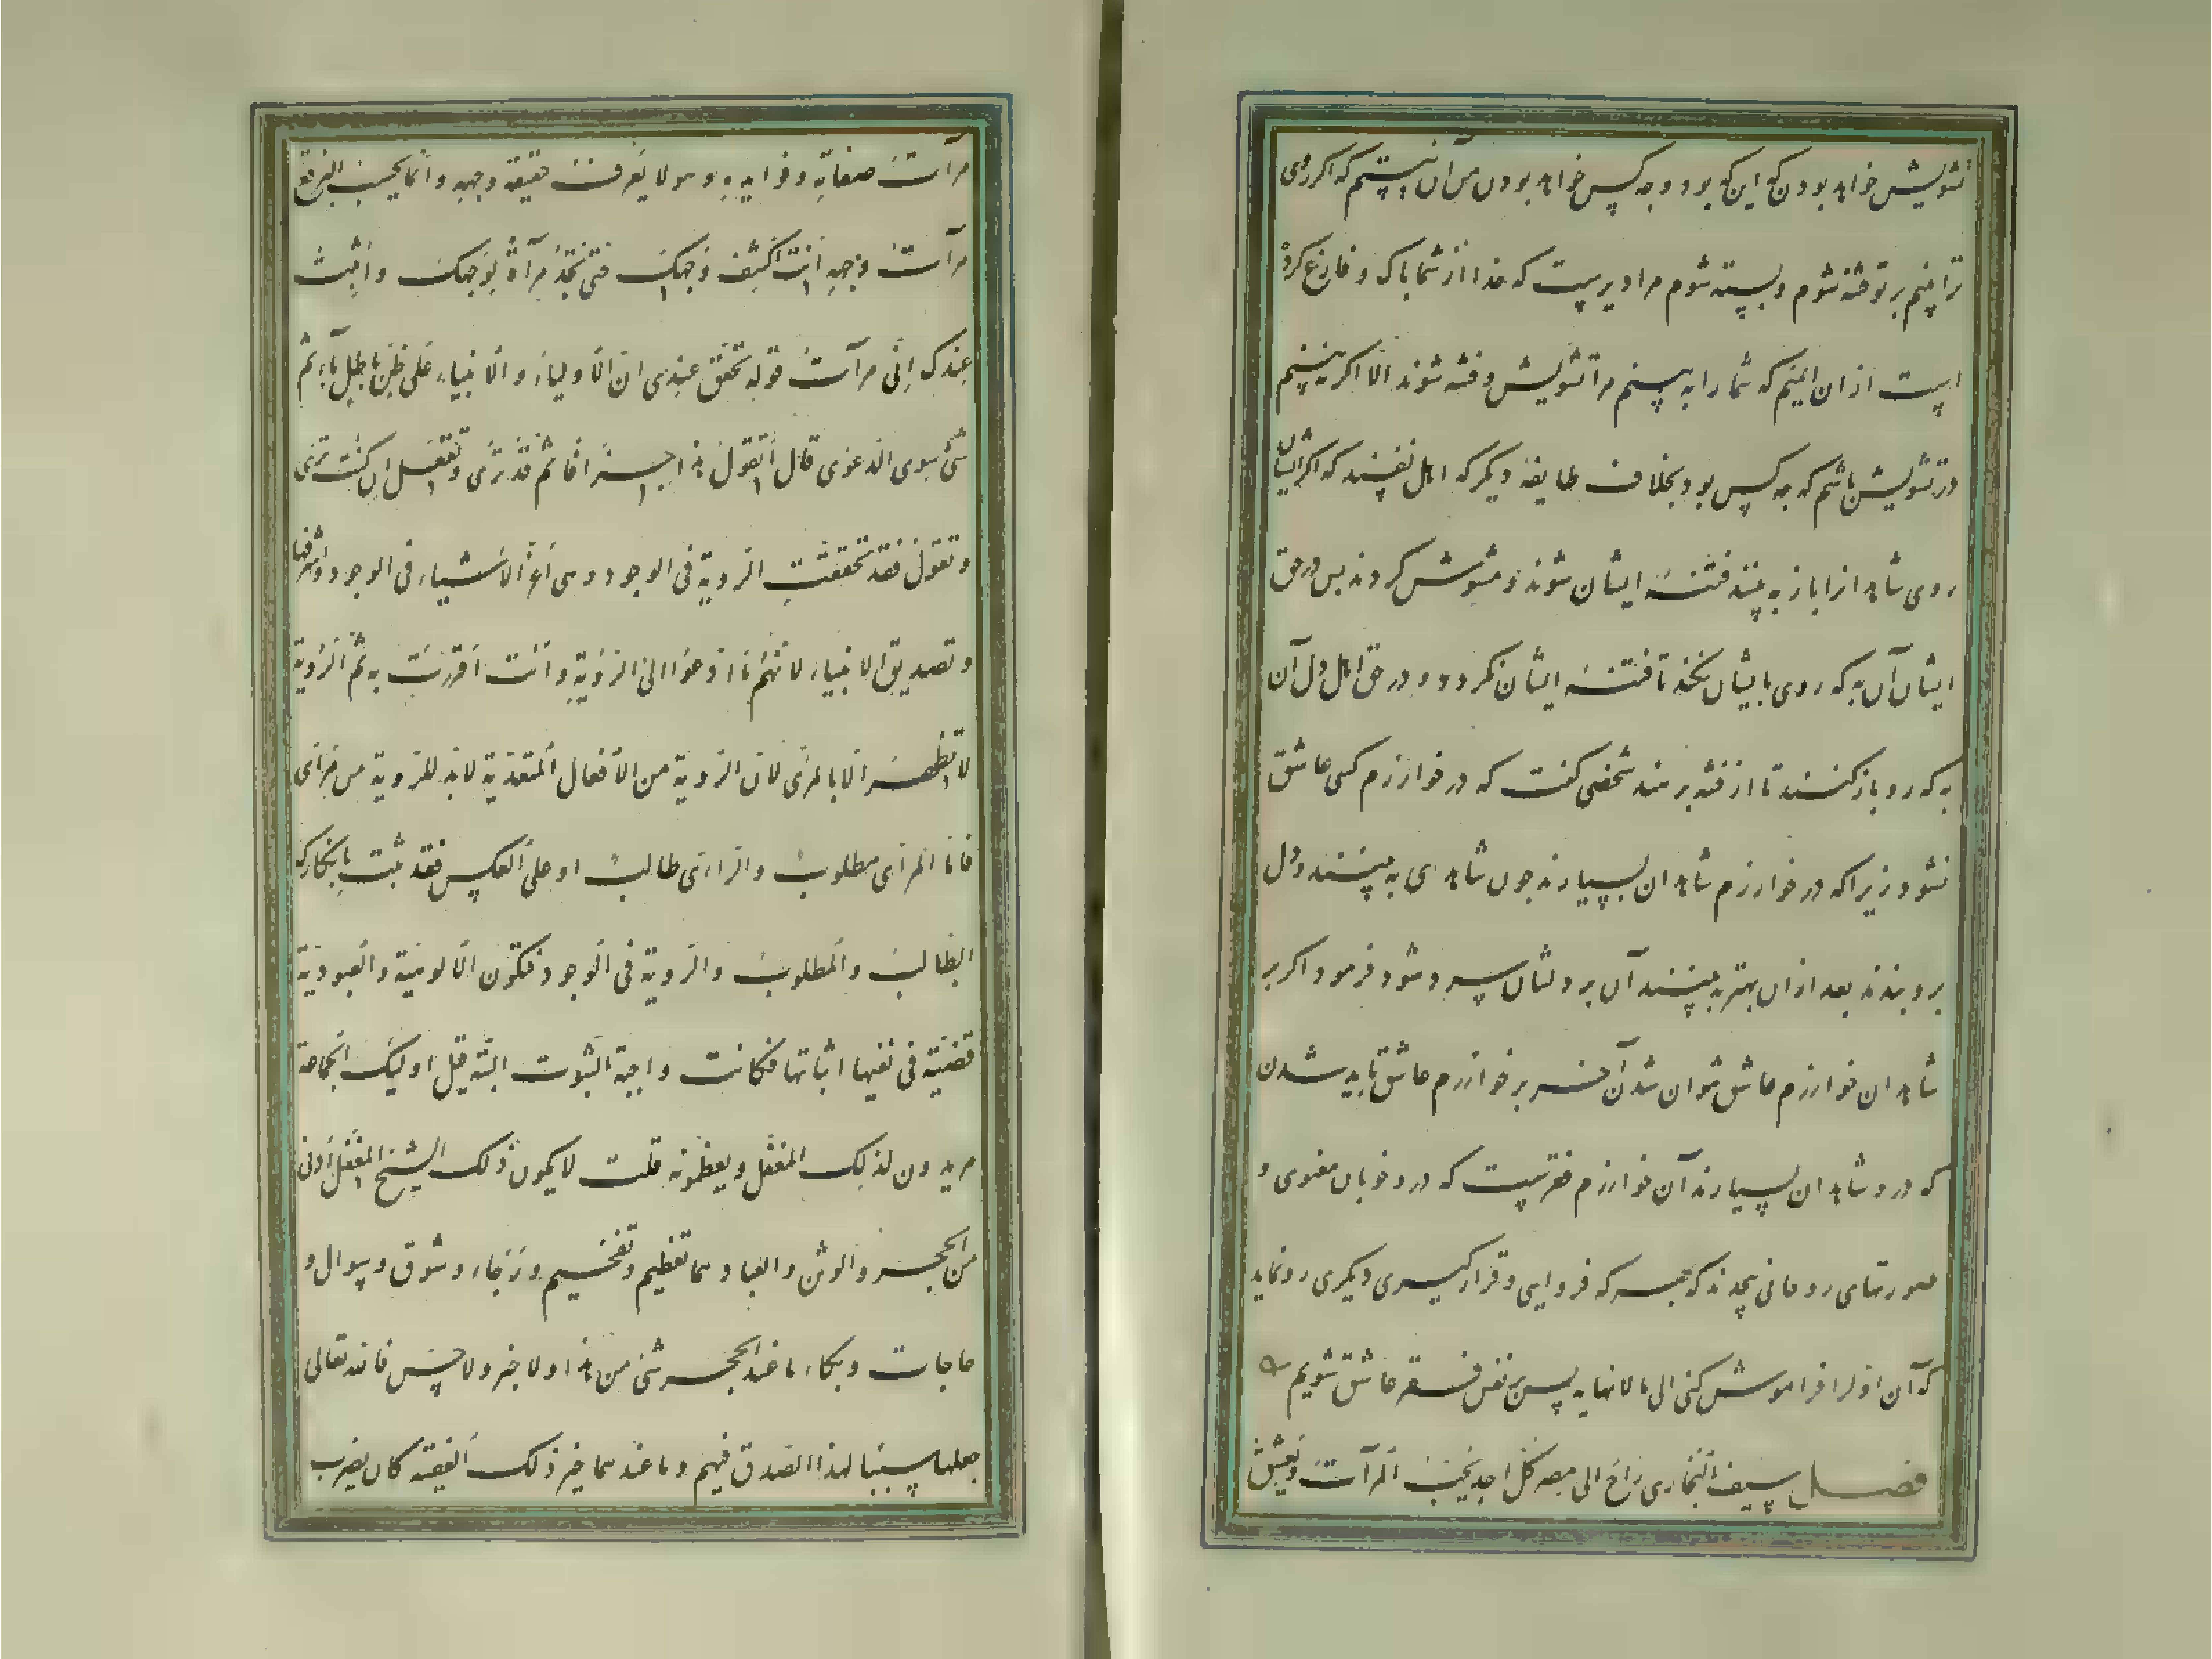 تشویش خواهد بودن که این که بود و چه کس خواهد بودن من آن نیستم که اکر روی
ترا بینم بر تو فتنه شوم و بسته شوم مرا دیریست که خدا از شما پاک و فارغ کرده
است از ان ایمنم که شما را به بینم مرا تشویش و فتنه شوند الا اکر نه بینم
در تشویش باشم که چه کس بود بخلاف طایفهٔ دیکر که اهل نفسند که اکر ایشان
روی شاهدانرا باز به بینند فتنهٔ ایشان شوند و مشوش کردند پس در حق
ایشان آن به که روی بایشان نکند تا فتنهٔ ایشان نکردد و در حق اهل دل آن
به که رو باز کنند تا از فتنه برهند شخصی کفت که در خوارزم کسی عاشق
نشود زیرا که در خوارزم شاهدان بسیارند چون شاهدی به بینند و دل
برو بندند بعد از ان بهتر به بینند آن بر دلشان سرد شود فرمود اکر بر
شاهدان خوارزم عاشق نتوان شدن آخر بر خوارزم عاشق باید شدن
که درو شاهدان بسیارند آن خوارزم فقرست که درو خوبان معنوی و
صورتهای روحانی بیحدند که بهر که فرو آیی و قرار کیری دیکری رو نماید
که آن اول را فراموش کنی الی ما لانهایه پس بر نفس فقر عاشق شویم
فصل سیف البخاری راح الی مصر کل احد یحب المرآت و یعشق
مرآت صفاته و فوایده و هو لا یعرف حقیقة وجهه و انما یحسب البرقع
مرآت وجهه انت اکشف وجهک حتی تجد مرآة لوجهک و اثبت
عندک انی مرآت قوله تحقق عندی ان الاولیاء و الانبیاء علی ظن باطل ما ثم
شئ سوی الدعوی قال أتقول هذا جزافا ثم قد تری و تقول ان کنت تری
و تقول فقد تحققت الرویة فی الوجود و هی أعز الاشیاء فی الوجود و اشرفها
و تصدیق الانبیاء لانهم ما ادعوا الا الرؤیة و انت اقررت به ثم الرؤیة
لا تظهر الا بالمرئی لان الرویة من الافعال المتعدیة لابد للرویة من مرئی
فاما المرئی مطلوب و الرائی طالب او علی العکس فقد ثبت بانکارک
الطالب و المطلوب و الرویة فی الوجود فتکون الالوهیة و العبودیة
قضیة فی نفیها اثباتها فکانت واجبة الثبوت البتة قیل اولیک الجماعة
مریدون لذلک المغفل و یعظمونه قلت لا یکون ذلک الشیخ المغفل أدنی
من الحجر و الوثن و العبادهما تعظیم و تفخیم و رجاء و شوق و سوال و
حاجات و بکاء ما عند الحجر شئ من هذا ولا خبر ولا حس فالله تعالی
جعلها سببا لهذا الصدق فیهم و ما عندهما خبر ذلک الفقیه کان یضرب